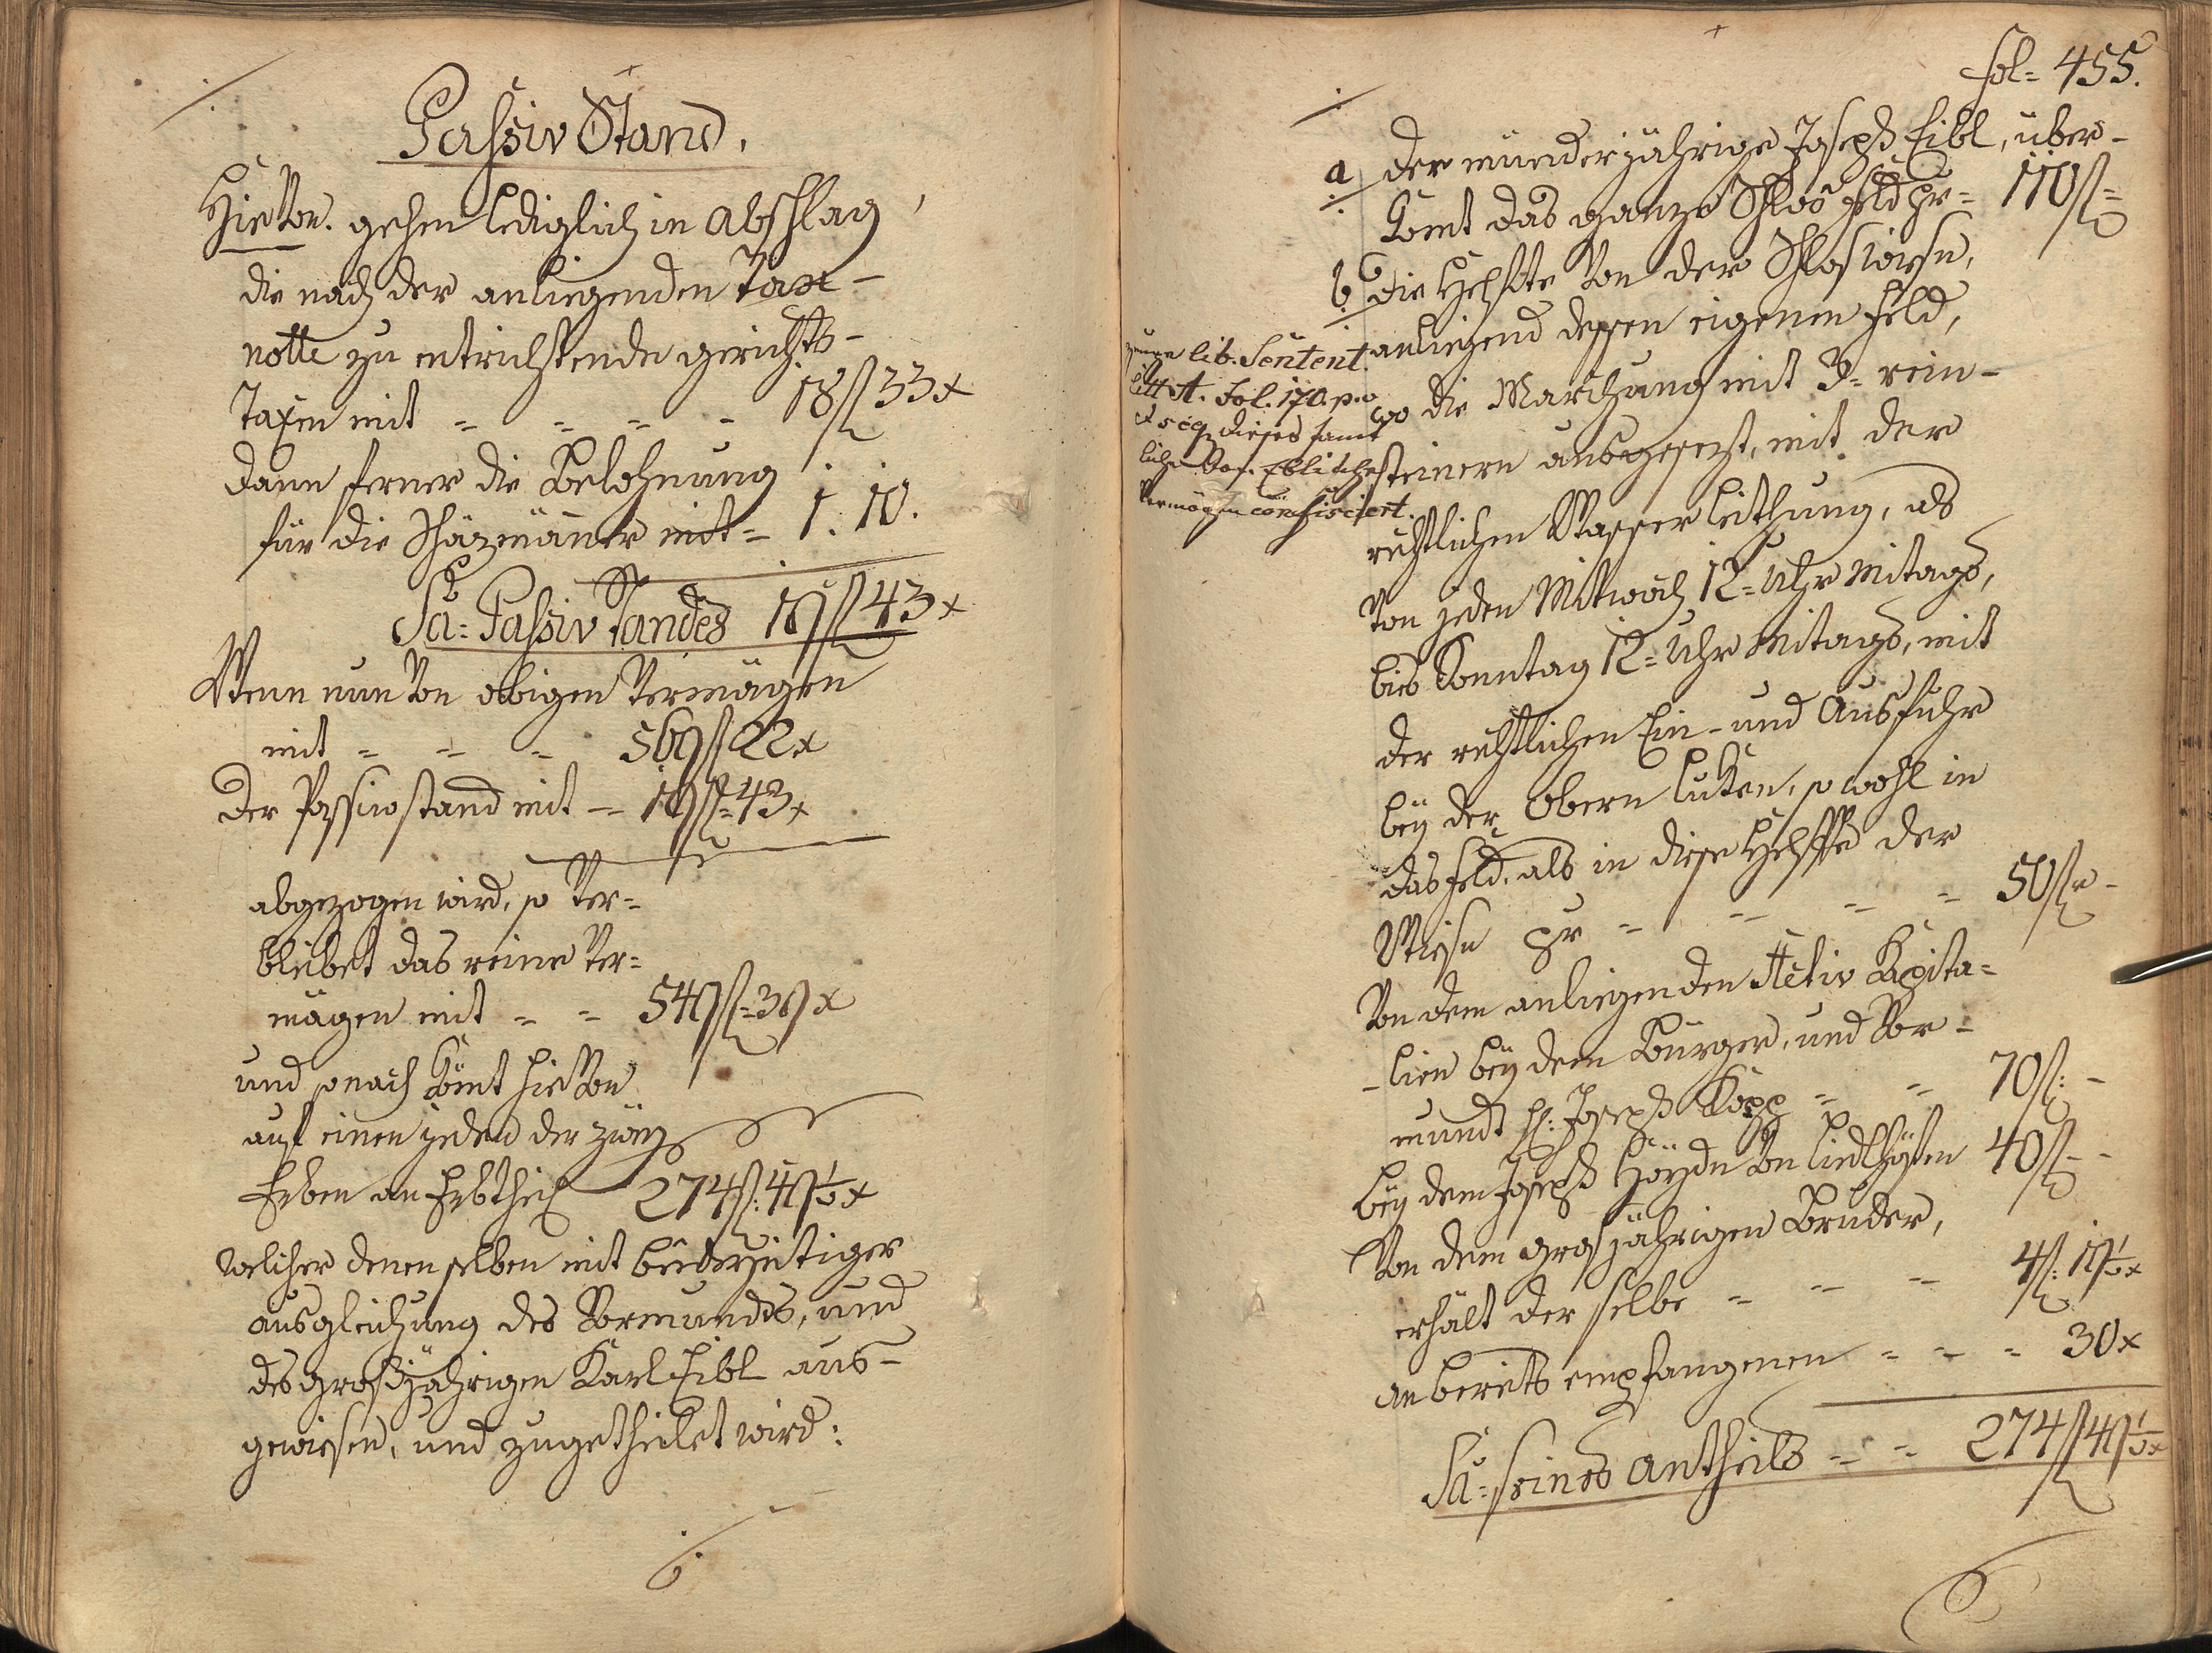 Passiv Stand.
Hievon. gehen lediglich in Abschlag
die nach der anliegenden Tax-
notte zu entrichtende gerichts-
Taxen mit = = = - 18 f 33 x
dann ferner die Belohnung
für die Schäzmänner mit = 1. 10.
Sa= Passiv Standes 19 f 43 x
Wenn nun von obigen Vermögen
mit = = = 569 f 22 x
der Passivstand mit = 19 f = 43 x
abgezogen wird, so ver=
bleibet das reine Ver=
mögen mit = = 549 f = 39 x
und sonach kömt hievon
auf einen jeden der zwey
Erben an Erbtheil 274 f: 49 ½ x
welcher denenselben mit beiderseitiger
ausgleichung des Vormunds, und
des großjährigen Karl Eibl aus-
gewiesen, und zugetheilet wird:
fol= 455.
a der münderjährige Joseph Eibl, über-
kömt das ganze Schlos feld pr= 110 f =
b die Helfte von der Schloswiese,
anliegend dessen eigenen feld,
wo die Marchung mit 3= rein-
steinern ausgesezt, mit der
rechtlichen Wasserleithung, als
von jeden Mitwoch 12= Uhr Mitags,
bies Sonntag 12= Uhr Mitags, mit
der rechtlichen Ein- und Ausfuhr
bey der obern lucken, so wohl in
das feld, als in diese Helffte der
Wiese pr = = = = 50 f -
Von dem anliegenden Activ Kapita=
-lien bey dem Bürger, und Vor-
mundt H: Joseph Köpp = = 70 f: -
bey dem Joseph Hoyde von 40 f - -
Von dem grosjährigen Bruder,
erhält der selbe = = = 4 f: 19 ½ x
an bereits empfangenen = = = 30 x
Sa= seines Antheils = = 274 f 49 ½ x
lib. Sentent.
litt A. fol. 170. p.
et seq dieses samt
liche
vermögen confisciert.